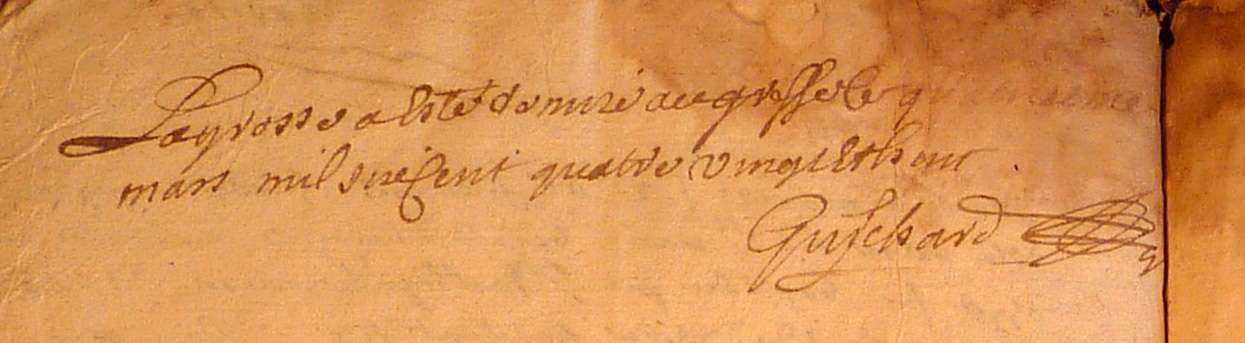 La grosse a esté remise au greffe le quinziesme
mars mil six cent quatre vingt et huit
Guischard